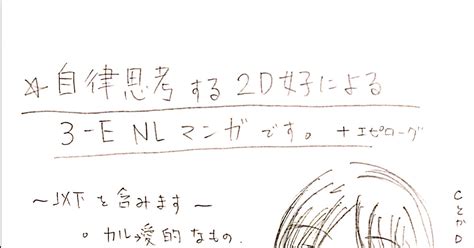 ☆自律思考する2D女子による
3-E NLマンガです。 +エピローグ
~以下を含みます~
。カル愛的なもの.
CとかD